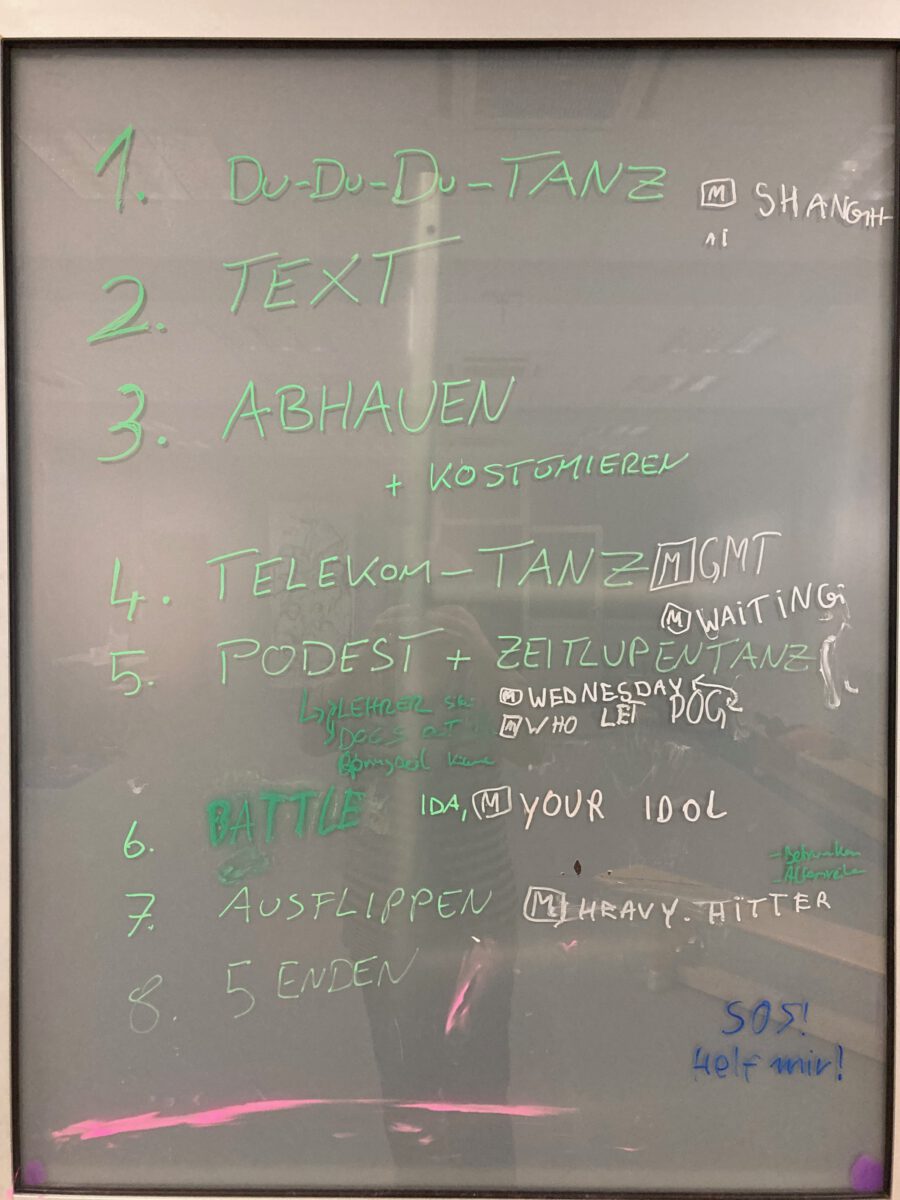 1. DU-DU-DU-TANZ M SHANGH-
AI
2. TEXT
3. ABHAUEN
+ KOSTÜMIEREN
4. TELEKOM-TANZ M GMT
M WAITING
5. PODEST + ZEITLUPENTANZ
LEHRER M WEDNESDAY
DOGS M WHO LET DOGS
6. BATTLE IDA, M YOUR IDOL
7. AUSFLIPPEN M HEAVY. HITTER
8. 5 ENDEN
SOS!
Helf mir!